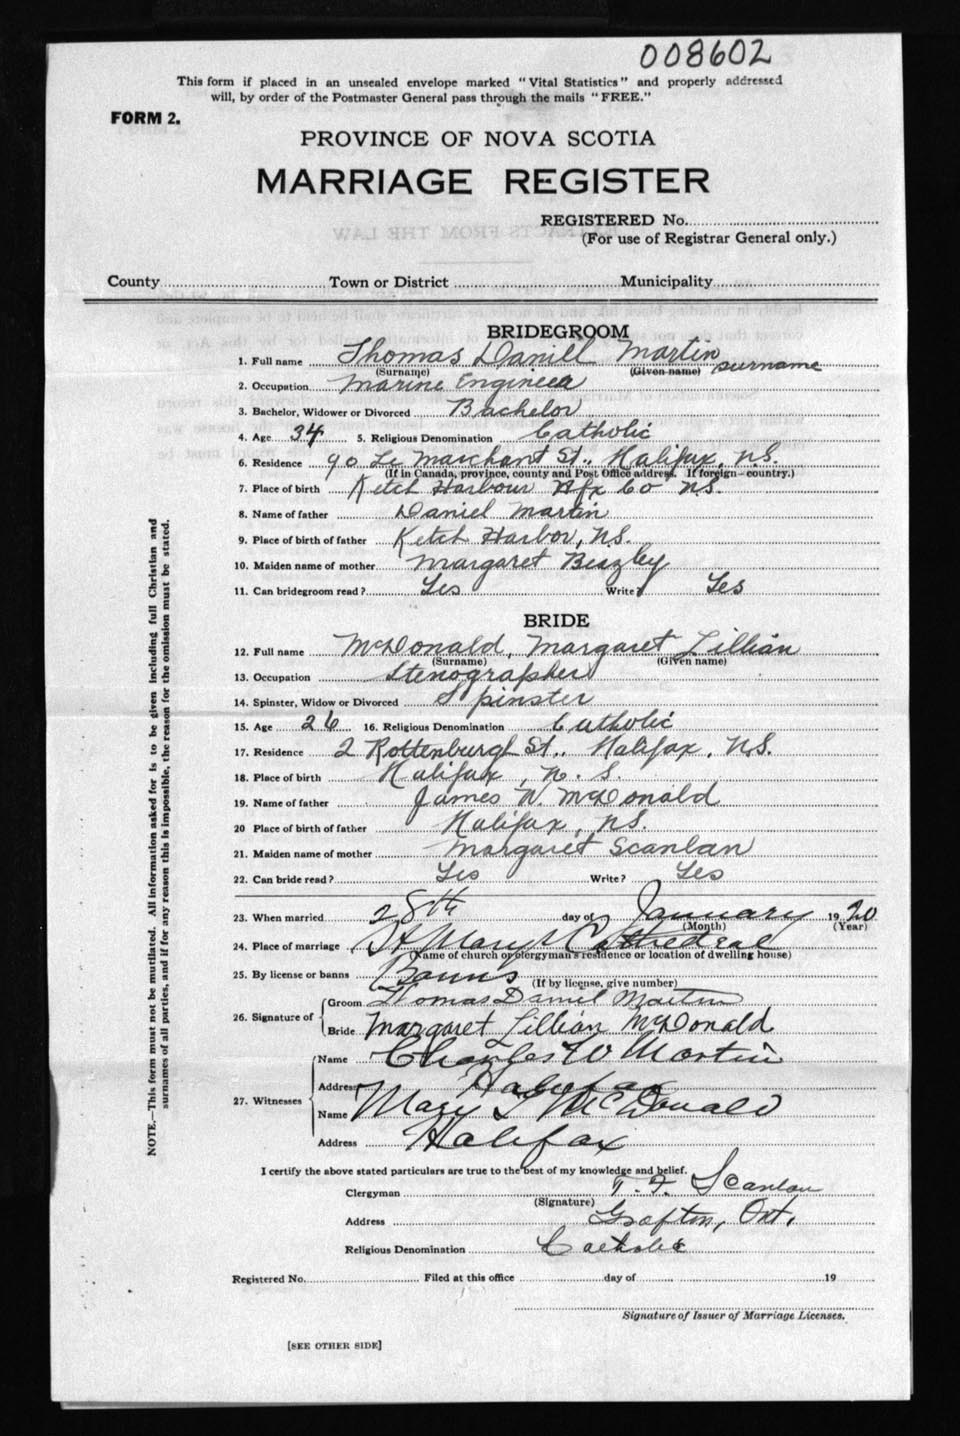 008602
This form if placed in an unsealed envelope marked "Vital Statistics" and properly addressed
will, by order of the Postmaster General pass through the mails "FREE."
FORM 2.
PROVINCE OF NOVA SCOTIA
MARRIAGE REGISTER
REGISTERED No.
(For use of Registrar General only.)
County Town or District Municipality
BRIDEGROOM
1. Full name Thomas Daniel Martin surname
(Surname) (Given name)
2. Occupation Marine Engineer
3. Bachelor, Widower or Divorced Bachelor
4. Age 34 5. Religious Denomination Catholic
6. Residence 90 Le Marchant St., Halifax, N.S.
(If in Canada, province, county and Post Office address. If foreign—country.)
7. Place of birth Ketch Harbour Hfx Co N.S.
8. Name of father Daniel Martin
9. Place of birth of father Ketch Harbor, N.S.
10. Maiden name of mother Margaret Beazley
11. Can bridegroom read? Yes Write? Yes
BRIDE
12. Full name McDonald, Margaret Lillian
(Surname) (Given name)
13. Occupation Stenographer
14. Spinster, Widow or Divorced Spinster
15. Age 26 16. Religious Denomination Catholic
17. Residence 2 Rottenburgh St., Halifax, N.S.
18. Place of birth Halifax, N.S.
19. Name of father James W. McDonald
20 Place of birth of father Halifax, N.S.
21. Maiden name of mother Margaret Scanlan
22. Can bride read? Yes Write? Yes
23. When married 28th day of January 1920
(Month) (Year)
24. Place of marriage St Mary's Cathedral
(Name of church or clergyman's residence or location of dwelling house)
25. By license or banns Banns
(If by license, give number)
26. Signature of Groom Thomas Daniel Martin
Bride Margaret Lillian McDonald
27. Witnesses Name Charles W Martin
Address Halifax
Name Mary L McDonald
Address Halifax
I certify the above stated particulars are true to the best of my knowledge and belief.
Clergyman T. F. Scanlan
(Signature)
Address Grafton, Ont.
Religious Denomination Catholic
Registered No. Filed at this office day of 19
Signature of Issuer of Marriage Licenses.
[SEE OTHER SIDE]
NOTE.—This form must not be mutilated. All information asked for is to be given including full Christian and
surnames of all parties, and if for any reason this is impossible, the reason for the omission must be stated.